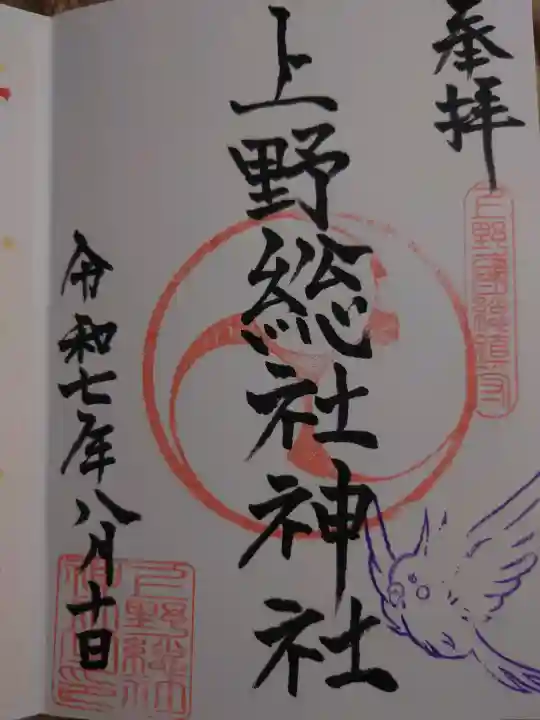 奉拝
上野國総鎮守
上野総社神社
令和七年八月十日
上野総社
神社之印